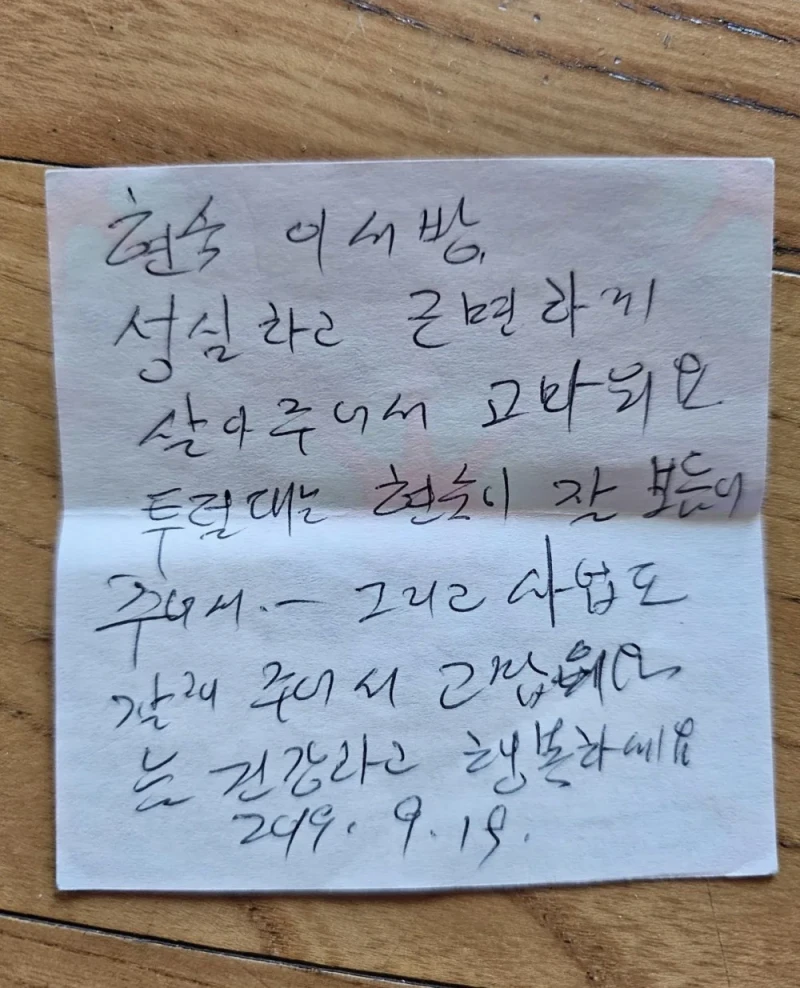 현숙 이서방
성실하고 근면하게
살아주어서 고마워요
투덜대는 현숙이 잘 보듬어
주어서.— 그리고 사업도
잘해 주어서
는 건강하고 행복하세요
2019. 9. 19.